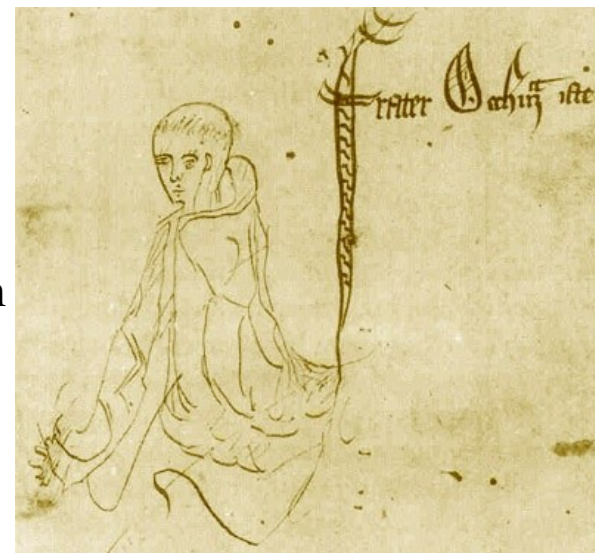 frater Occham iste
n